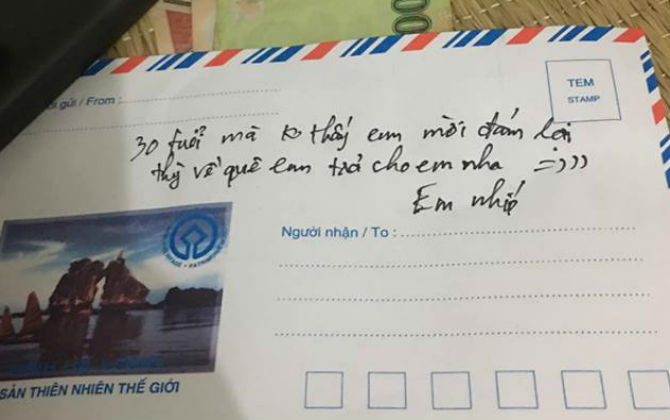 gửi / From :
TEM
STAMP
30 tuổi mà ko thấy em mời đám lại
thỳ về quê em trả cho em nha =)))
Em nhiố
Người nhận / To :
SẢN THIÊN NHIÊN THẾ GIỚI